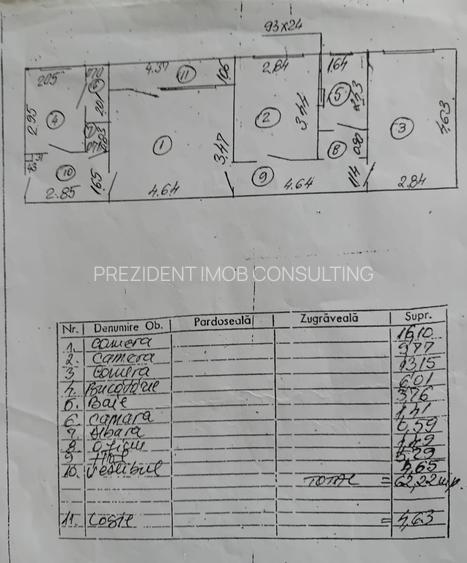 93x24
205
070
4.37
11
106
2.84
1.64
6
4
2.95
201
5
2
3.44
3
4.63
1
7
3.47
8
080
10
2.85
165
4.64
9
4.64
114
2.84
PREZIDENT IMOB CONSULTING
Nr. Denumire Ob. Pardoseală Zugrăveală Supr.
1. Camera 16,10
2. Camera 9,77
3 Camera 13,15
4. Bucătărie 6,01
5. Baie 3,76
6 Camara 1,41
7. 0,59
8 Oficiu 1,49
9. 5,29
10. Vestibul 4,65
TOTAL = 62,22 m.p.
11. Logie = 4,63